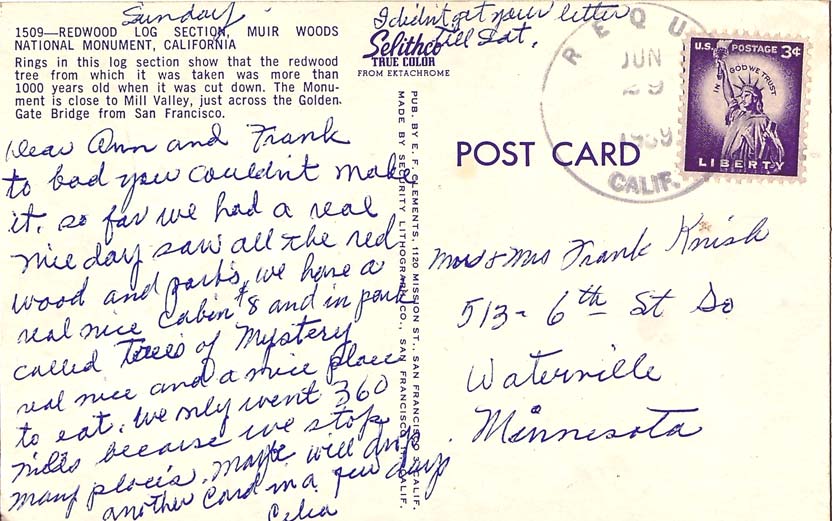 Sunday
1509—REDWOOD LOG SECTION, MUIR WOODS
NATIONAL MONUMENT, CALIFORNIA
Rings in this log section show that the redwood
tree from which it was taken was more than
1000 years old when it was cut down. The Monu-
ment is close to Mill Valley, just across the Golden
Gate Bridge from San Francisco.
I didn't get your letter
till Sat.
Selithco
TRUE COLOR
FROM EKTACHROME
Dear Ann and Frank
to bad you couldn't make
it. so far we had a real
nice day saw all the red
wood and parks, we have a
real nice Cabin #8 and in park
called Trees of Mystery
real nice and a nice place
to eat. We only went 360
miles because we stop
many places. Maybe will drop
another Card in a few days
Celia
PUB. BY E. F. CLEMENTS, 1120 MISSION ST., SAN FRANCISCO 3, CALIF.
MADE BY SECURITY LITHOGRAPH CO., SAN FRANCISCO, CALIF.
POST CARD
REQU
JUN
29
1959
CALIF.
U.S. POSTAGE 3¢
IN GOD WE TRUST
LIBERTY
Mr & Mrs Frank Knish
513- 6th St So
Waterville
Minnesota